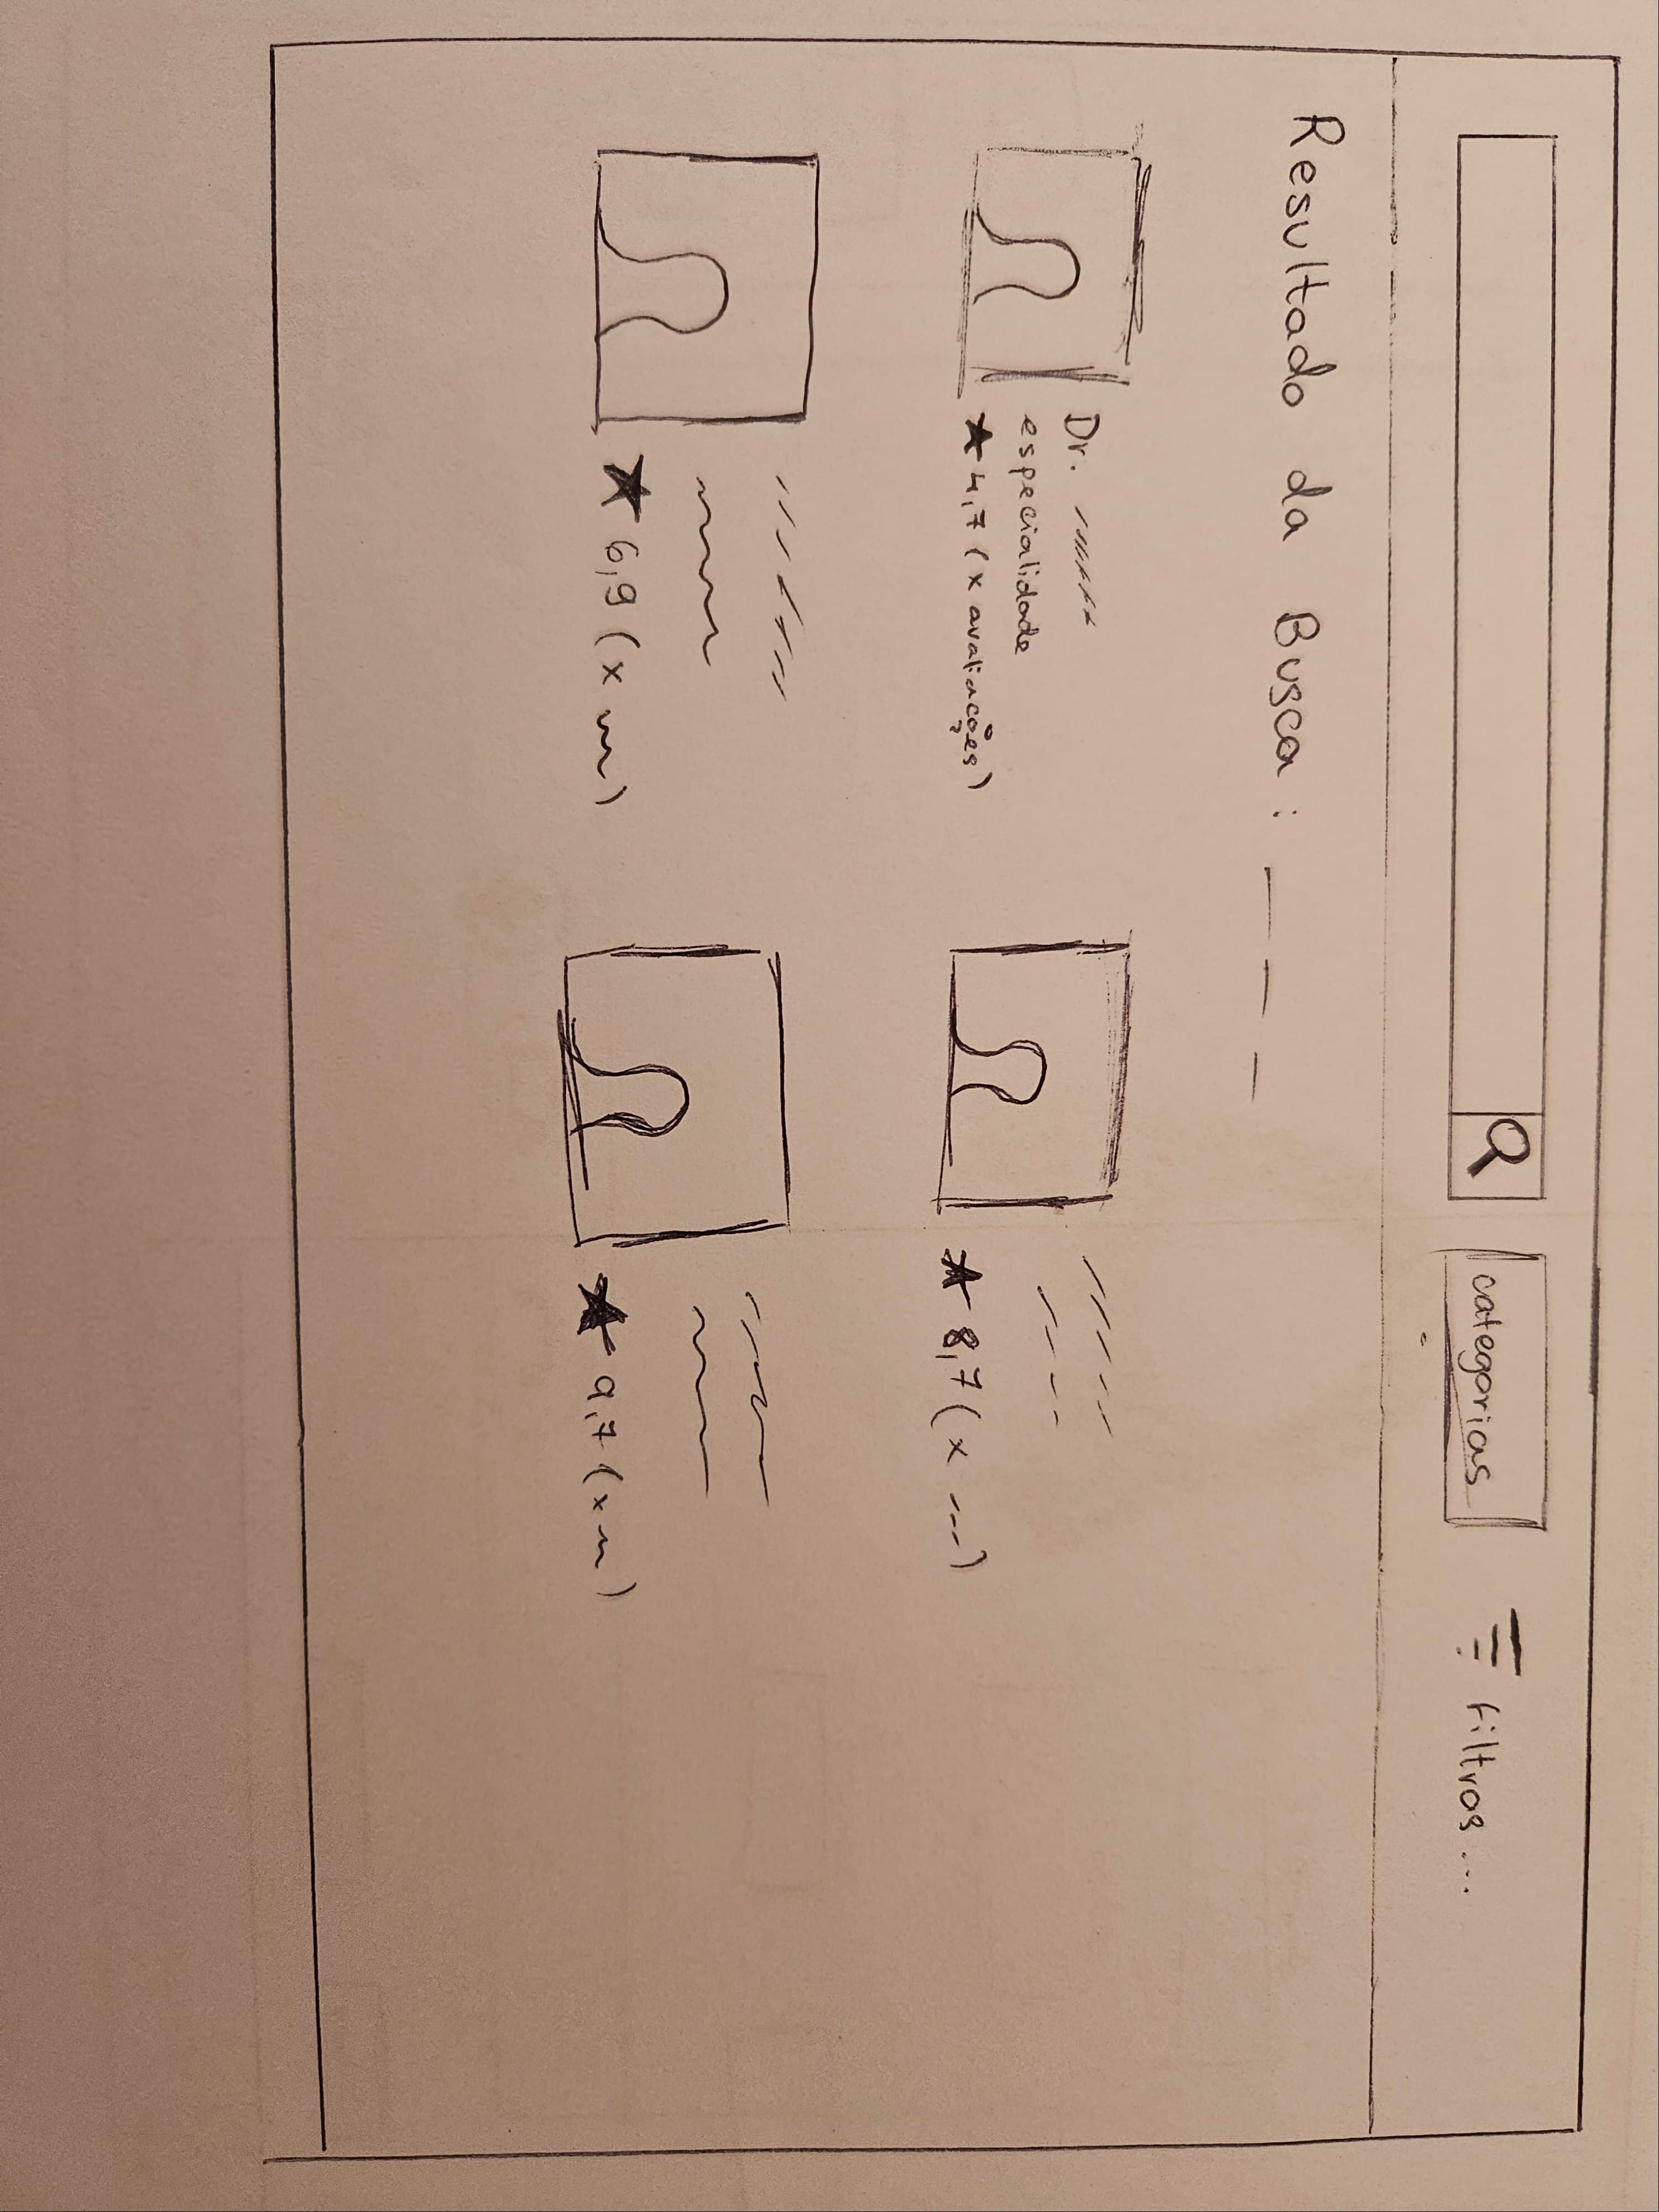 categorias
filtros...
Resultado da Busca : _ _ _
Dr.
especialidade
★ 4,7 (x avaliações)
★ 8,7 (x ---)
★ 6,9 (x )
★ 9,7 (x )